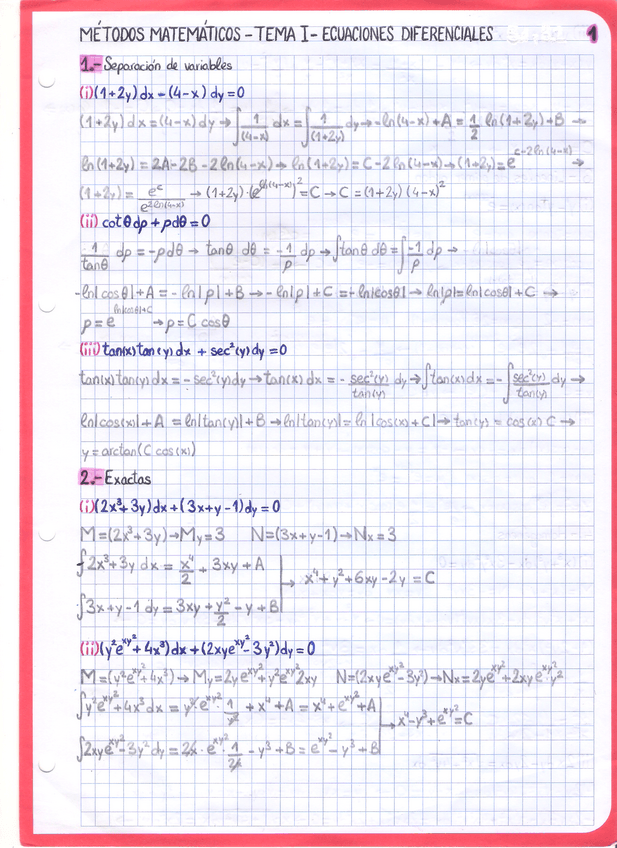 MÉTODOS MATEMÁTICOS - TEMA I - ECUACIONES DIFERENCIALES 1
1.- Separación de variables
(i) (1+2y) dx - (4-x) dy = 0
(1+2y) dx = (4-x) dy → ∫ 1/(4-x) dx = ∫ 1/(1+2y) dy → -ln(4-x) + A = 1/2 ln(1+2y) + B →
ln(1+2y) = 2A-2B-2ln(4-x) → ln(1+2y) = C-2ln(4-x) → (1+2y) = e^(c-2ln(4-x)) →
(1+2y) = e^c/e^(2ln(4-x)) → (1+2y)·(e^(ln(4-x)))^2 = C → C = (1+2y)(4-x)²
(ii) cotθ dρ + ρdθ = 0
1/tanθ dρ = -ρdθ → tanθ dθ = -1/ρ dρ → ∫tanθ dθ = ∫-1/ρ dρ →
-ln|cosθ| + A = -ln|ρ| + B → -ln|ρ| + C = -ln|cosθ| → ln|ρ| = ln|cosθ| + C →
ρ = e^(ln|cosθ|+C) → ρ = C cosθ
(iii) tan(x)tan(y) dx + sec²(y) dy = 0
tan(x)tan(y) dx = -sec²(y) dy → tan(x) dx = - sec²(y)/tan(y) dy → ∫tan(x) dx = -∫ sec²(y)/tan(y) dy →
ln|cos(x)| + A = ln|tan(y)| + B → ln|tan(y)| = ln|cos(x) + C| → tan(y) = cos(x) C →
y = arctan(C cos(x))
2.- Exactas
(i) (2x³+3y) dx + (3x+y-1) dy = 0
M = (2x³+3y) → My = 3 N = (3x+y-1) → Nx = 3
∫2x³+3y dx = x⁴/2 + 3xy + A
→ x⁴+y²+6xy-2y = C
∫3x+y-1 dy = 3xy + y²/2 - y + B
(ii) (y²e^(xy²) + 4x³) dx + (2xye^(xy²) - 3y²) dy = 0
M = (y²e^(xy²) + 4x³) → My = 2ye^(xy²) + y²e^(xy²)2xy N = (2xye^(xy²) - 3y²) → Nx = 2ye^(xy²) + 2xye^(xy²)y²
∫y²e^(xy²) + 4x³ dx = y²·e^(xy²)·1/y² + x⁴ + A = x⁴ + e^(xy²) + A
→ x⁴-y³+e^(xy²) = C
∫2xye^(xy²) - 3y² dy = 2x·e^(xy²)·1/2x - y³ + B = e^(xy²) - y³ + B